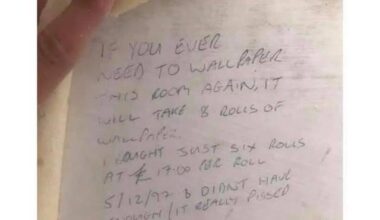 IF YOU EVER
NEED TO WALLPAPER
THIS ROOM AGAIN, IT
WILL TAKE 8 ROLLS OF
WALLPAPER.
I BOUGHT JUST SIX ROLLS
AT £ 17.00 PER ROLL
5/12/97 & DIDNT HAVE
ENOUGH / IT REALLY PISSED